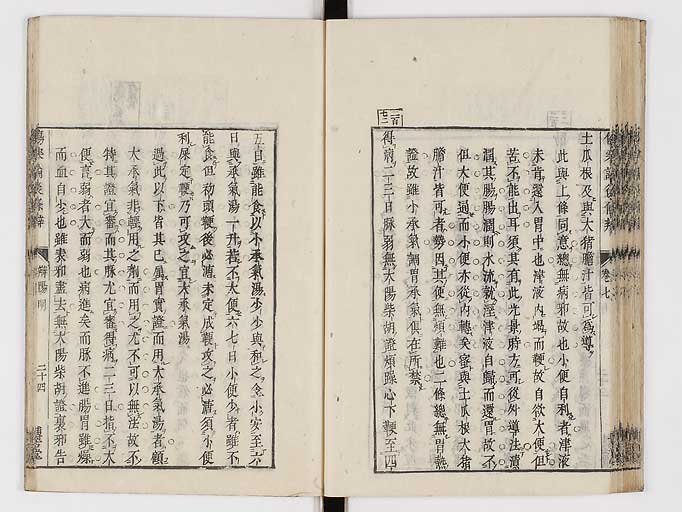 土瓜根及與大猪膽汁皆可為導
此與上條同意總無病邪故也小便自利者津液
未肯還入胃中也津液內竭而鞕故自欲大便但
苦不能出耳須其有此光景時方可從外導法漬
潤其腸腸潤則水流就溼津液自歸而還胃故不
但大便通而小便亦從內轉矣蜜與土瓜根大猪
膽汁皆可者勢因其便無煩難也二條總無胃熱
證故雖小承氣調胃承氣俱在所禁
得病二三日脈弱無太陽柴胡證煩躁心下鞕至四
五日雖能食以小承氣湯少少與和之令小安至六
日與承氣湯一升若不大便六七日小便少者雖不
能食但初頭鞕後必溏未定成鞕攻之必溏須小便
利屎定鞕乃可攻之宜大承氣湯
過此以下皆其已屬胃實證而用大承氣湯者顧
大承氣非輕用之劑而用之尤不可以無法故不
特其證宜審而其脈尤宜審得病二三日指不大
便言弱者大而弱也病進矣而脈不進腸胃雖燥
而血自少也雖表邪盡去無太陽柴胡證裏邪告
辨陽明
二十四
卷七